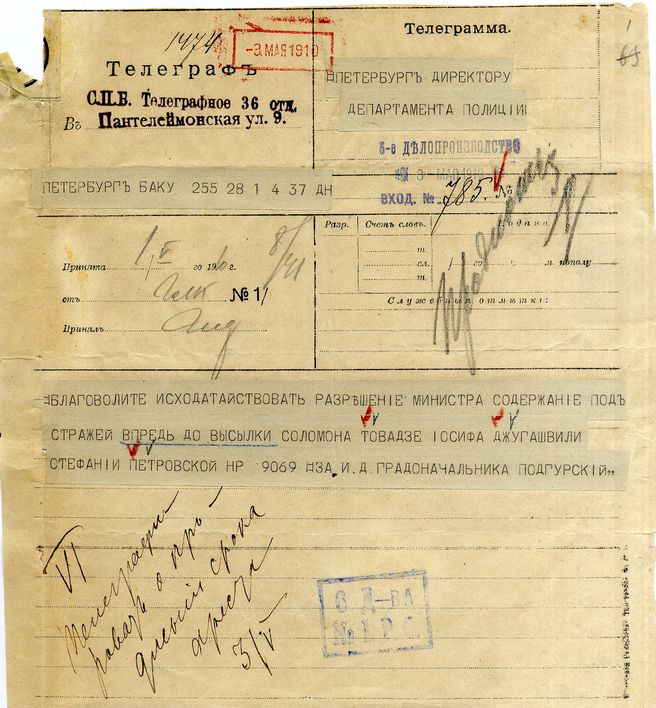 1474
-3 МАЯ 1910
Телеграфъ
С.П.Б. Телеграфное 36 отд.
Въ Пантелеймонская ул. 9.
Телеграмма.
ПЕТЕРБУРГЪ ДИРЕКТОРУ
ДЕПАРТАМЕНТА ПОЛИЦIИ
6-е ДѢЛОПРОИЗВОДСТВО
ВХОД. № 785. №
ПЕТЕРБУРГЪ БАКУ 255 28 1 4 37 ДН
Принята 1/V го 1910 г.
отъ № 1
Принялъ
Разр.
Счетъ словъ.
Подана
т.
сл. го ч. м. пополу
ш.
Служебныя отмѣтки:
БЛАГОВОЛИТЕ ИСХОДАТАЙСТВОВАТЬ РАЗРѢШЕНIЕ МИНИСТРА СОДЕРЖАНIЕ ПОДЪ
СТРАЖЕЙ ВПРЕДЬ ДО ВЫСЫЛКИ СОЛОМОНА ТОВАДЗЕ IОСИФА ДЖУГАШВИЛИ
СТЕФАНIИ ПЕТРОВСКОЙ НР 9069 =ЗА, И.Д. ГРАДОНАЧАЛЬНИКА ПОДГУРСКIЙ„
VI
Телеграфи-
ровать о про-
дленiи срока
ареста
3/V
6 Д-ВА
№ 1 Р.С.